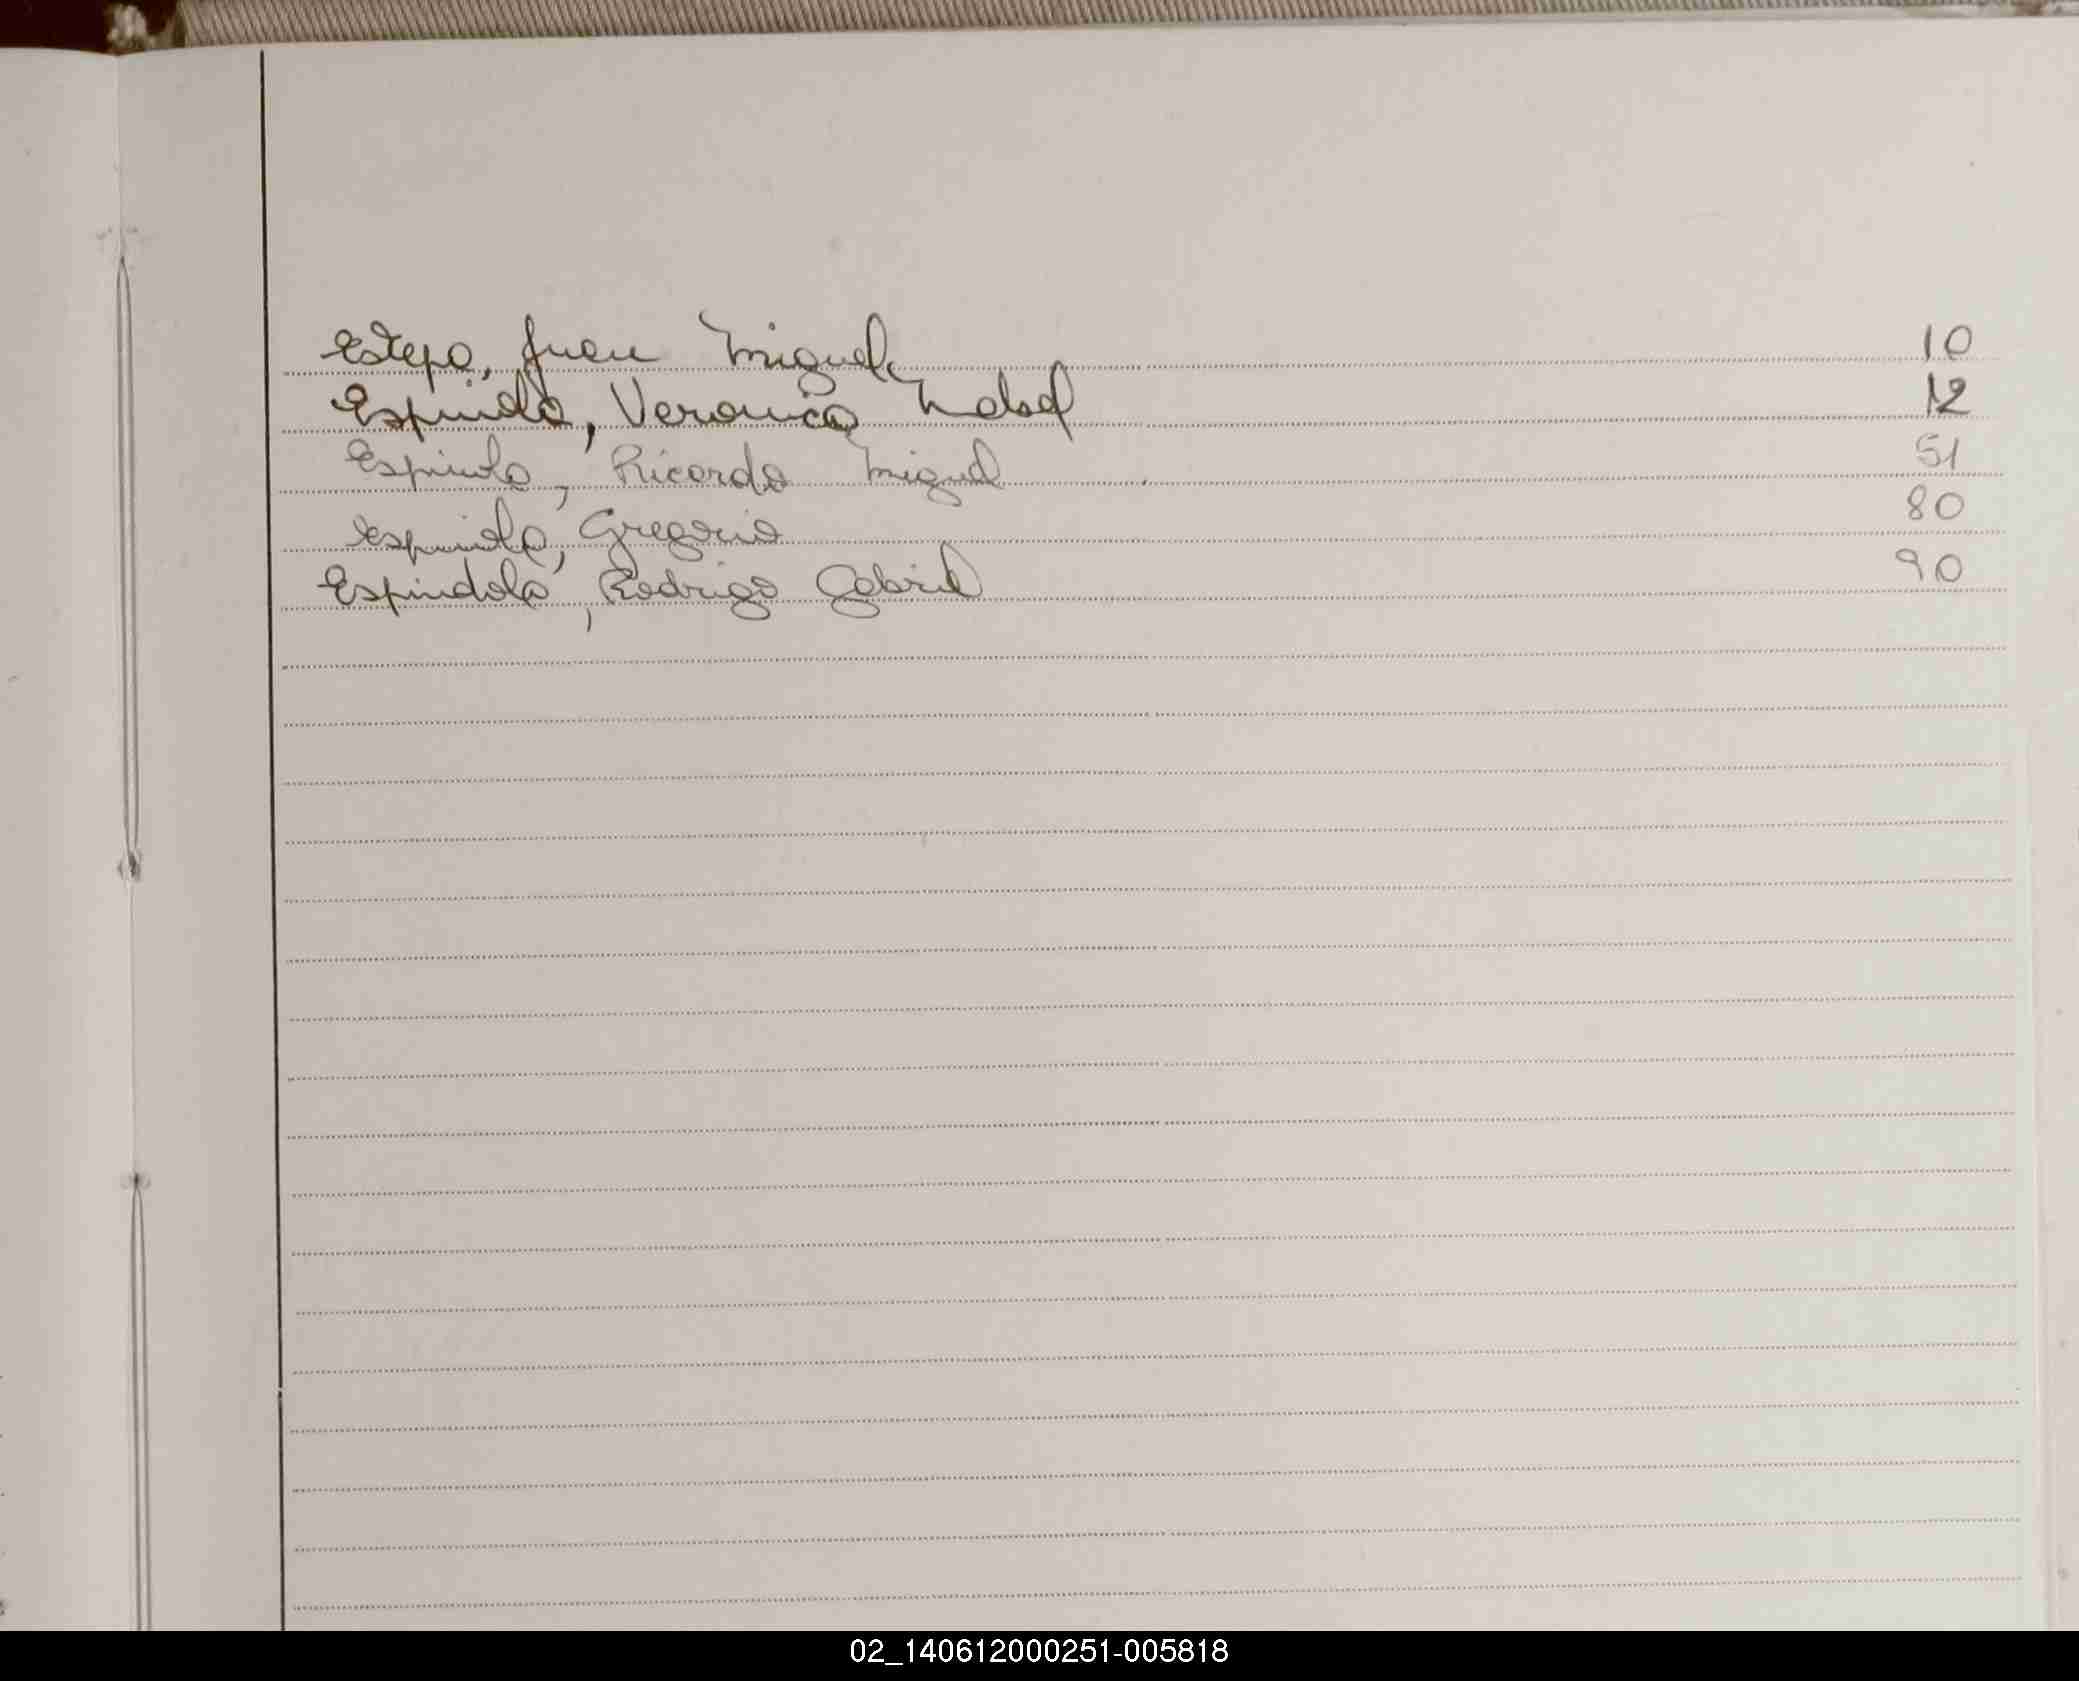 Estepa, Juan Miguel 10
Espinola, Veronica Isabel 12
Espinola, Ricardo Miguel 51
Espinola, Gregorio 80
Espindola, Rodrigo Gabriel 90
02_140612000251-005818